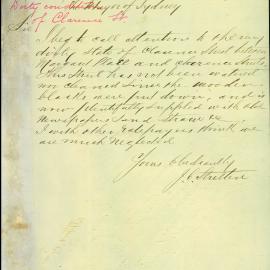 Dirty condition
of Clarence St
Mayor of Sydney
Sir
I beg to call attention to the very
dirty state of Clarence Street between
Margaret Place and
This street has not been watered
nor cleaned since the wooden
blocks were put down, and is
now plentifully supplied with old
Newspapers Sand Straw &c
I with other ratepayers think we
are much neglected
Yours Obediently